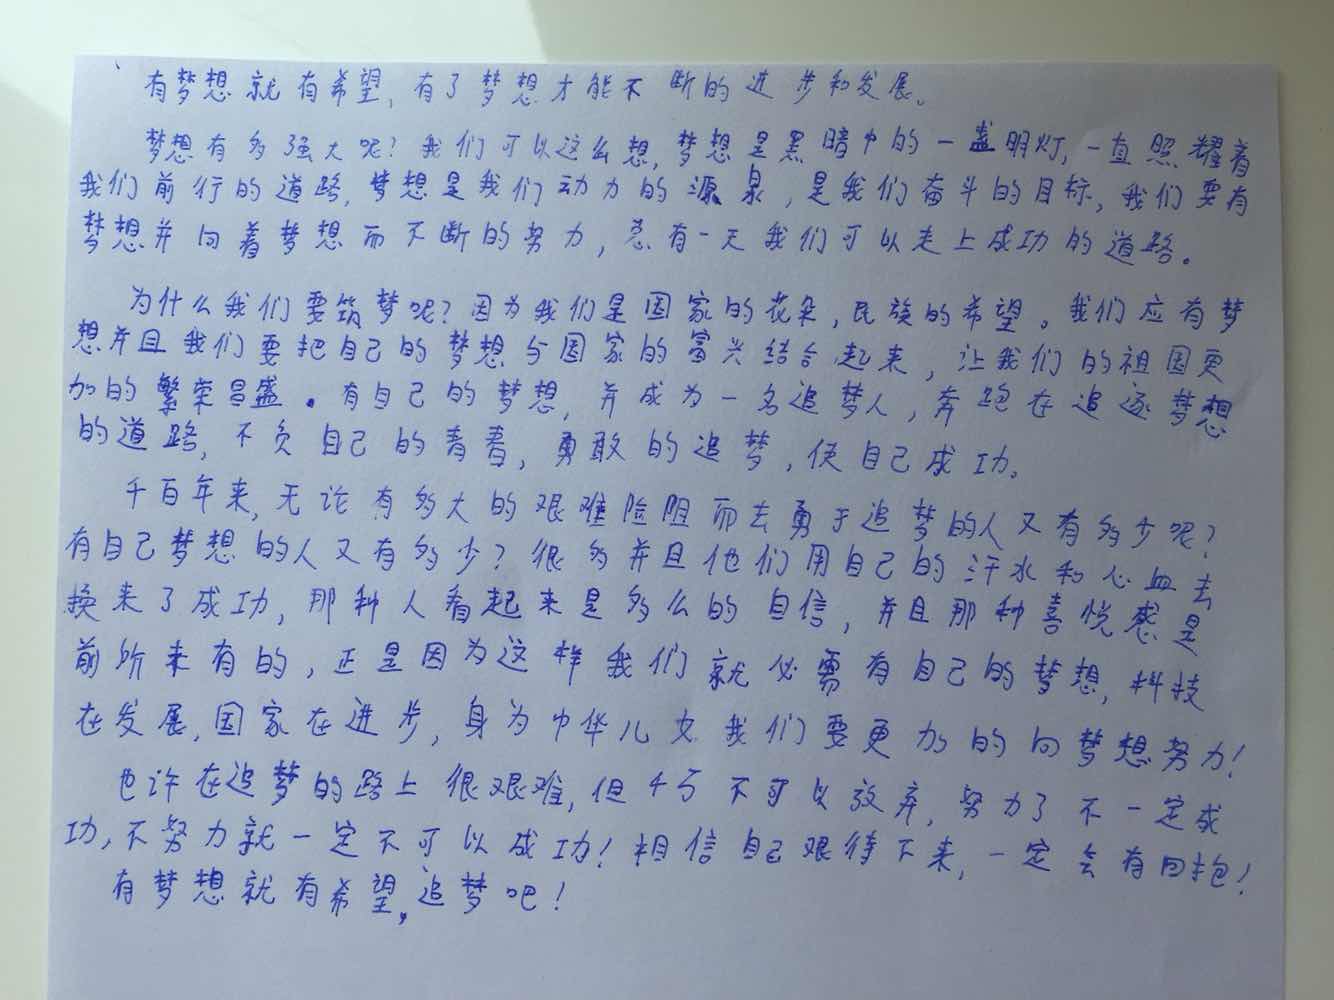 有梦想就有希望,有了梦想才能不断的进步和发展。
梦想有多强大呢?我们可以这么想,梦想是黑暗中的一盏明灯,一直照耀着
我们前行的道路,梦想是我们动力的源泉,是我们奋斗的目标,我们要有
梦想并向着梦想而不断的努力,总有一天我们可以走上成功的道路。
为什么我们要筑梦呢?因为我们是国家的花朵,民族的希望。我们应有梦
想并且我们要把自己的梦想与国家的富兴结合起来,让我们的祖国更
加的繁荣昌盛。有自己的梦想,并成为一名追梦人,奔跑在追逐梦想
的道路,不负自己的青春,勇敢的追梦,使自己成功。
千百年来,无论有多大的艰难险阻而去勇于追梦的人又有多少呢?
有自己梦想的人又有多少?很多并且他们用自己的汗水和心血去
换来了成功,那种人看起来是多么的自信,并且那种喜悦感是
前所未有的,正是因为这样我们就必需有自己的梦想,科技
在发展,国家在进步,身为中华儿女我们要更加的向梦想努力!
也许在追梦的路上很艰难,但千万不可以放弃,努力了不一定成
功,不努力就一定不可以成功!相信自己艰待下来,一定会有回抱!
有梦想就有希望,追梦吧!